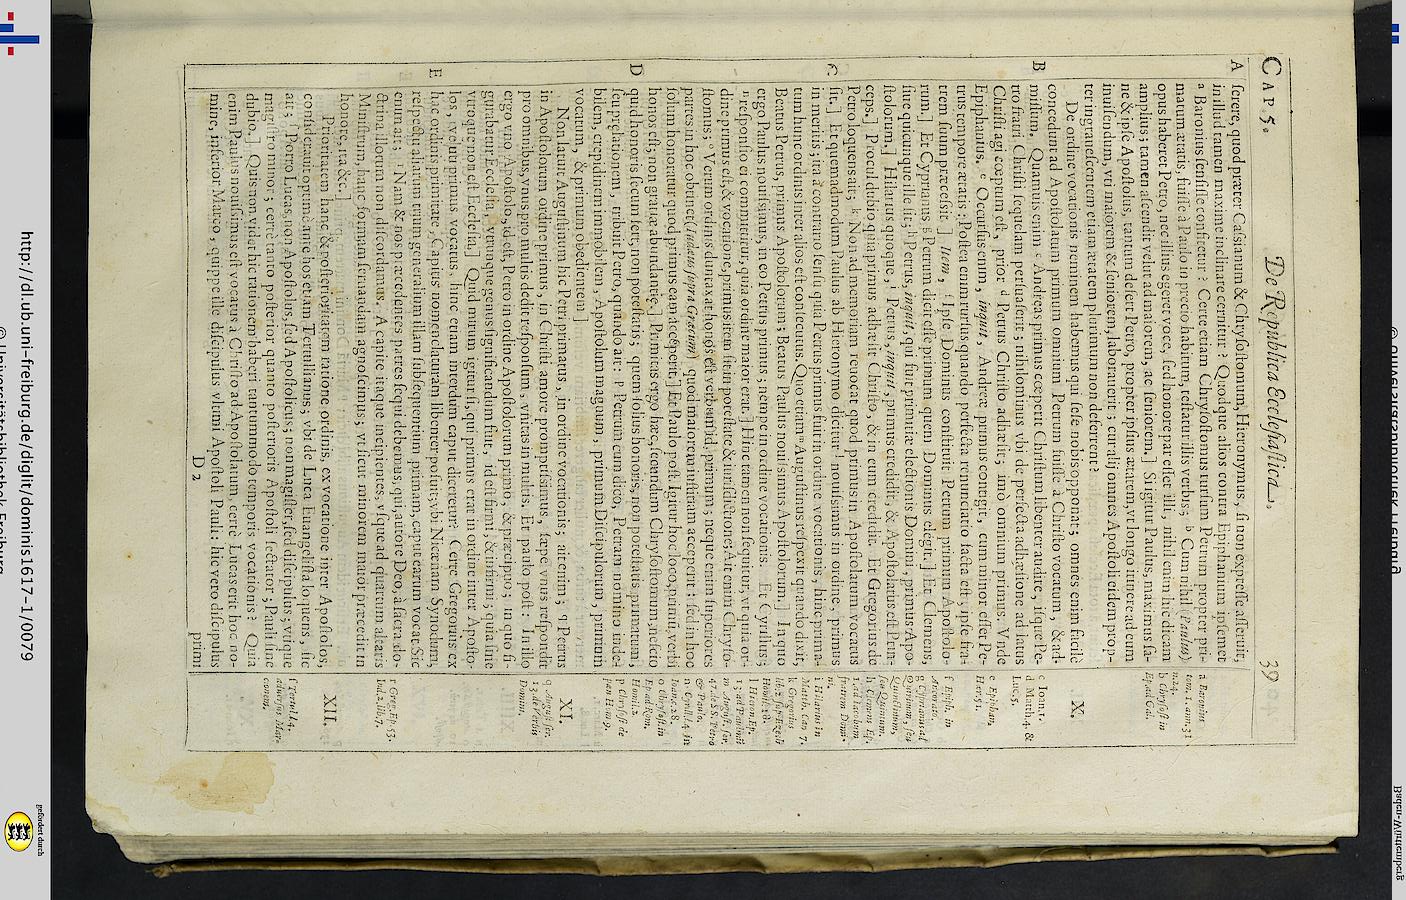 CAP. 5.
De Republica Ecclesiastica.
39
A
ferere, quod præter Caſsianum & Chryſoſtomum, Hieronymus, ſi non expreſſe aſſeruit,
in illud tamen maxime inclinare cernitur? Quodque alios contra Epiphanium ipſemet
a Baronius ſenſiſſe confitetur: Certe etiam Chryſoſtomus rurſum Petrum propter pri-
matum ætatis, fuiſſe à Paulo in precio habitum, teſtatur illis verbis; b Cum nihil (Paulus)
opus haberet Petro, nec illius egeret voce, ſed honore par eſſet illi, nihil enim hic dicam
amplius; tamen aſcendit velut ad maiorem, ac ſeniorem.] Si igitur Paulus, maximus ſa-
ne & ipſe Apoſtolus, tantum defert Petro, propter ipſius ætatem, vt longo itinere ad eum
inuiſendum, vti maiorem & ſeniorem, laborauerit: cur alij omnes Apoſtoli eidem prop-
ter ingraueſcentem etiam ætatem plurimum non deferrent?
De ordine vocationis neminem habemus qui ſeſe nobis opponat; omnes enim facilè
concedunt ad Apoſtolatum primum omnium Petrum fuiſſe à Chriſto vocatum, & ad-
B
miſſum. Quamuis enim c Andreas primus cœperit Chriſtum libenter audire, iſque Pe-
tro fratri Chriſti ſequelam perſuaſerit; nihilominus vbi de perfecta adhæſione ad latus
Chriſti agi cœptum eſt, prior d Petrus Chriſto adhæſit; imò omnium primus: Vnde
Epiphanius. e Occurſus enim, inquit, Andreæ primus contigit, cum minor eſſet Pe-
trus tempore ætatis: Poſtea enim rurſus quando perfecta renunciatio facta eſt; ipſe fra-
trem ſuum præceſsit.] Item, f Ipſe Dominus conſtituit Petrum primum Apoſtolo-
rum.] Et Cyprianus g Petrum dicit eſſe primum quem Dominus elegit.] Et Clemens,
ſiue quicunque ille ſit; h Petrus, inquit, qui fuit primitiæ electionis Domini, primus Apo-
ſtolorum.] Hilarius quoque, i Petrus, inquit, primus credidit, & Apoſtolatus eſt Prin-
ceps.] Procul dubio quia primus adhæſit Chriſto, & in eum credidit. Et Gregorius de
Petro loquens ait; k Non ad memoriam reuocat quod primus in Apoſtolatum vocatus
C
ſit.] Et quemadmodum Paulus ab Hieronymo dicitur l nouiſsimus in ordine, primus
in meritis; ita à contrario ſenſu quia Petrus primus fuit in ordine vocationis, hinc prima-
tum hunc ordinis inter alios eſt conſecutus. Quo etiam m Auguſtinus reſpexit quando dixit,
Beatus Petrus, primus Apoſtolorum; Beatus Paulus nouiſsimus Apoſtolorum.] In quo
ergo Paulus nouiſsimus, in eo Petrus primus; nempe in ordine vocationis. Et Cyrillus;
n reſponſio ei committitur, quia ordine maior erat.] Hinc tamen non ſequitur, vt quia or-
dine primus eſt, & vocatione, primus item ſit in poteſtate & iuriſdictione; Ait enim Chryſo-
ſtomus; o Verum ordinis duntaxat honos eſt verbum id, primum; neque enim ſuperiores
partes in hoc obtinet (Iudæus ſupra Græcum) quod maiorem iuſtitiam acceperit: ſed in hoc
ſolum honoratur quod primus eam acceperit.] Et Paulo poſt. Igitur hoc loco, primũ, verbi
D
honos eſt, non gratiæ abundantię.] Primatus ergo hæc, ſecundum Chryſoſtomum, neſcio
quid honoris ſecum fert, non poteſtatis; quem ſolius honoris, non poteſtatis primatum,
ſeu prælationem, tribuit Petro, quando ait: p Petrum cum dico, Petram nomino inde-
bilem, crepidinem immobilem, Apoſtolum magnum, primum Diſcipulorum, primum
vocatum, & primum obedientem.]
Non latuit Auguſtinum hic Petri primatus, in ordine vocationis; ait enim; q Petrus
in Apoſtolorum ordine primus, in Chriſti amore promptiſsimus, ſæpe vnus reſpondit
pro omnibus, vnus pro multis dedit reſponſum, vnitas in multis. Et paulo poſt: In illo
ergo vno Apoſtolo, id eſt, Petro in ordine Apoſtolorum primo, & præcipuo; in quo fi-
gurabatur Eccleſia, vtrumque genus ſignificandum fuit, id eſt firmi, & infirmi; quia ſine
vtroque non eſt Eccleſia.] Quid mirum igitur ſi, qui primus erat in ordine inter Apoſto-
los, & veluti primus vocatus, hinc etiam interdum caput diceretur? Certe Gregorius ex
E
hac ordinis primitate, Capitis nomenclaturam libenter poſuit; vbi Nicænam Synodum,
reſpectu aliarum trium generalium illam ſubſequentium primam, caput earum vocat: Sic
enim ait; r Nam & nos præcedentes patres ſequi debemus, qui, autore Deo, à ſacra do-
ctrina illorum non diſcordamus. A capite itaque incipientes, vſque ad quartum altaris
Miniſtrum, hanc formam ſeruandam agnoſcimus; vt ſicut minorem maior præcedit in
honore, ita &c.]
Prioritatem hanc & poſterioritatem ratione ordinis, ex vocatione inter Apoſtolos,
conſiderauit optimè ante hos etiam Tertullianus; vbi de Luca Euangeliſta loquens, ſic
ait; ſ Porro Lucas, non Apoſtolus, ſed Apoſtolicus; non magiſter, ſed diſcipulus; vtique
magiſtro minor; certè tanto poſterior quanto poſterioris Apoſtoli ſectator; Pauli ſine
dubio.] Quis non videt hic rationem haberi tantummodo temporis vocationis? Quia
enim Paulus nouiſsimus eſt vocatus à Chriſto ad Apoſtolatum, certè Lucas erit hoc no-
mine, inferior Marco, quippe ille diſcipulus vltimi Apoſtoli Pauli; hic vero diſcipulus
D 2
primi
a Baronius
tom. 1. ann. 31.
n. 24.
b Chryſoſt in
Ep. ad Gal.
X.
c Ioan. 1.
d Matth. 4. &
Luc. 5.
e Epiphan.
Hereſ. 51.
f Epiph. in
Ancorato.
g Cyprianus ad
Quintum, ſeu
Quintinum.
h Clemens Ep.
1. ad Iacobum
fratrem Domi-
ni.
i Hilarius in
Matth. Can. 7.
k Gregorius
l Hieron. Ep.
13. ad Paulinũ
m Auguſt. ſer.
n Cyrill. l. 4. in
Ioan. c. 28.
o Chryſoſt. in
Ep. ad Rom.
Homil. 2.
p Chryſoſt. de
XI.
q Auguſt. ſer.
13. de Verbis
Domini.
r Greg. Ep. 53.
Ind. 2. lib. 7.
XII.
ſ Tertul. l. 4.
aduerſus Mar-
cionem.
http://dl.ub.uni-freiburg.de/diglit/dominis1617-1/0079
© Universitätsbibliothek Freiburg
gefördert durch